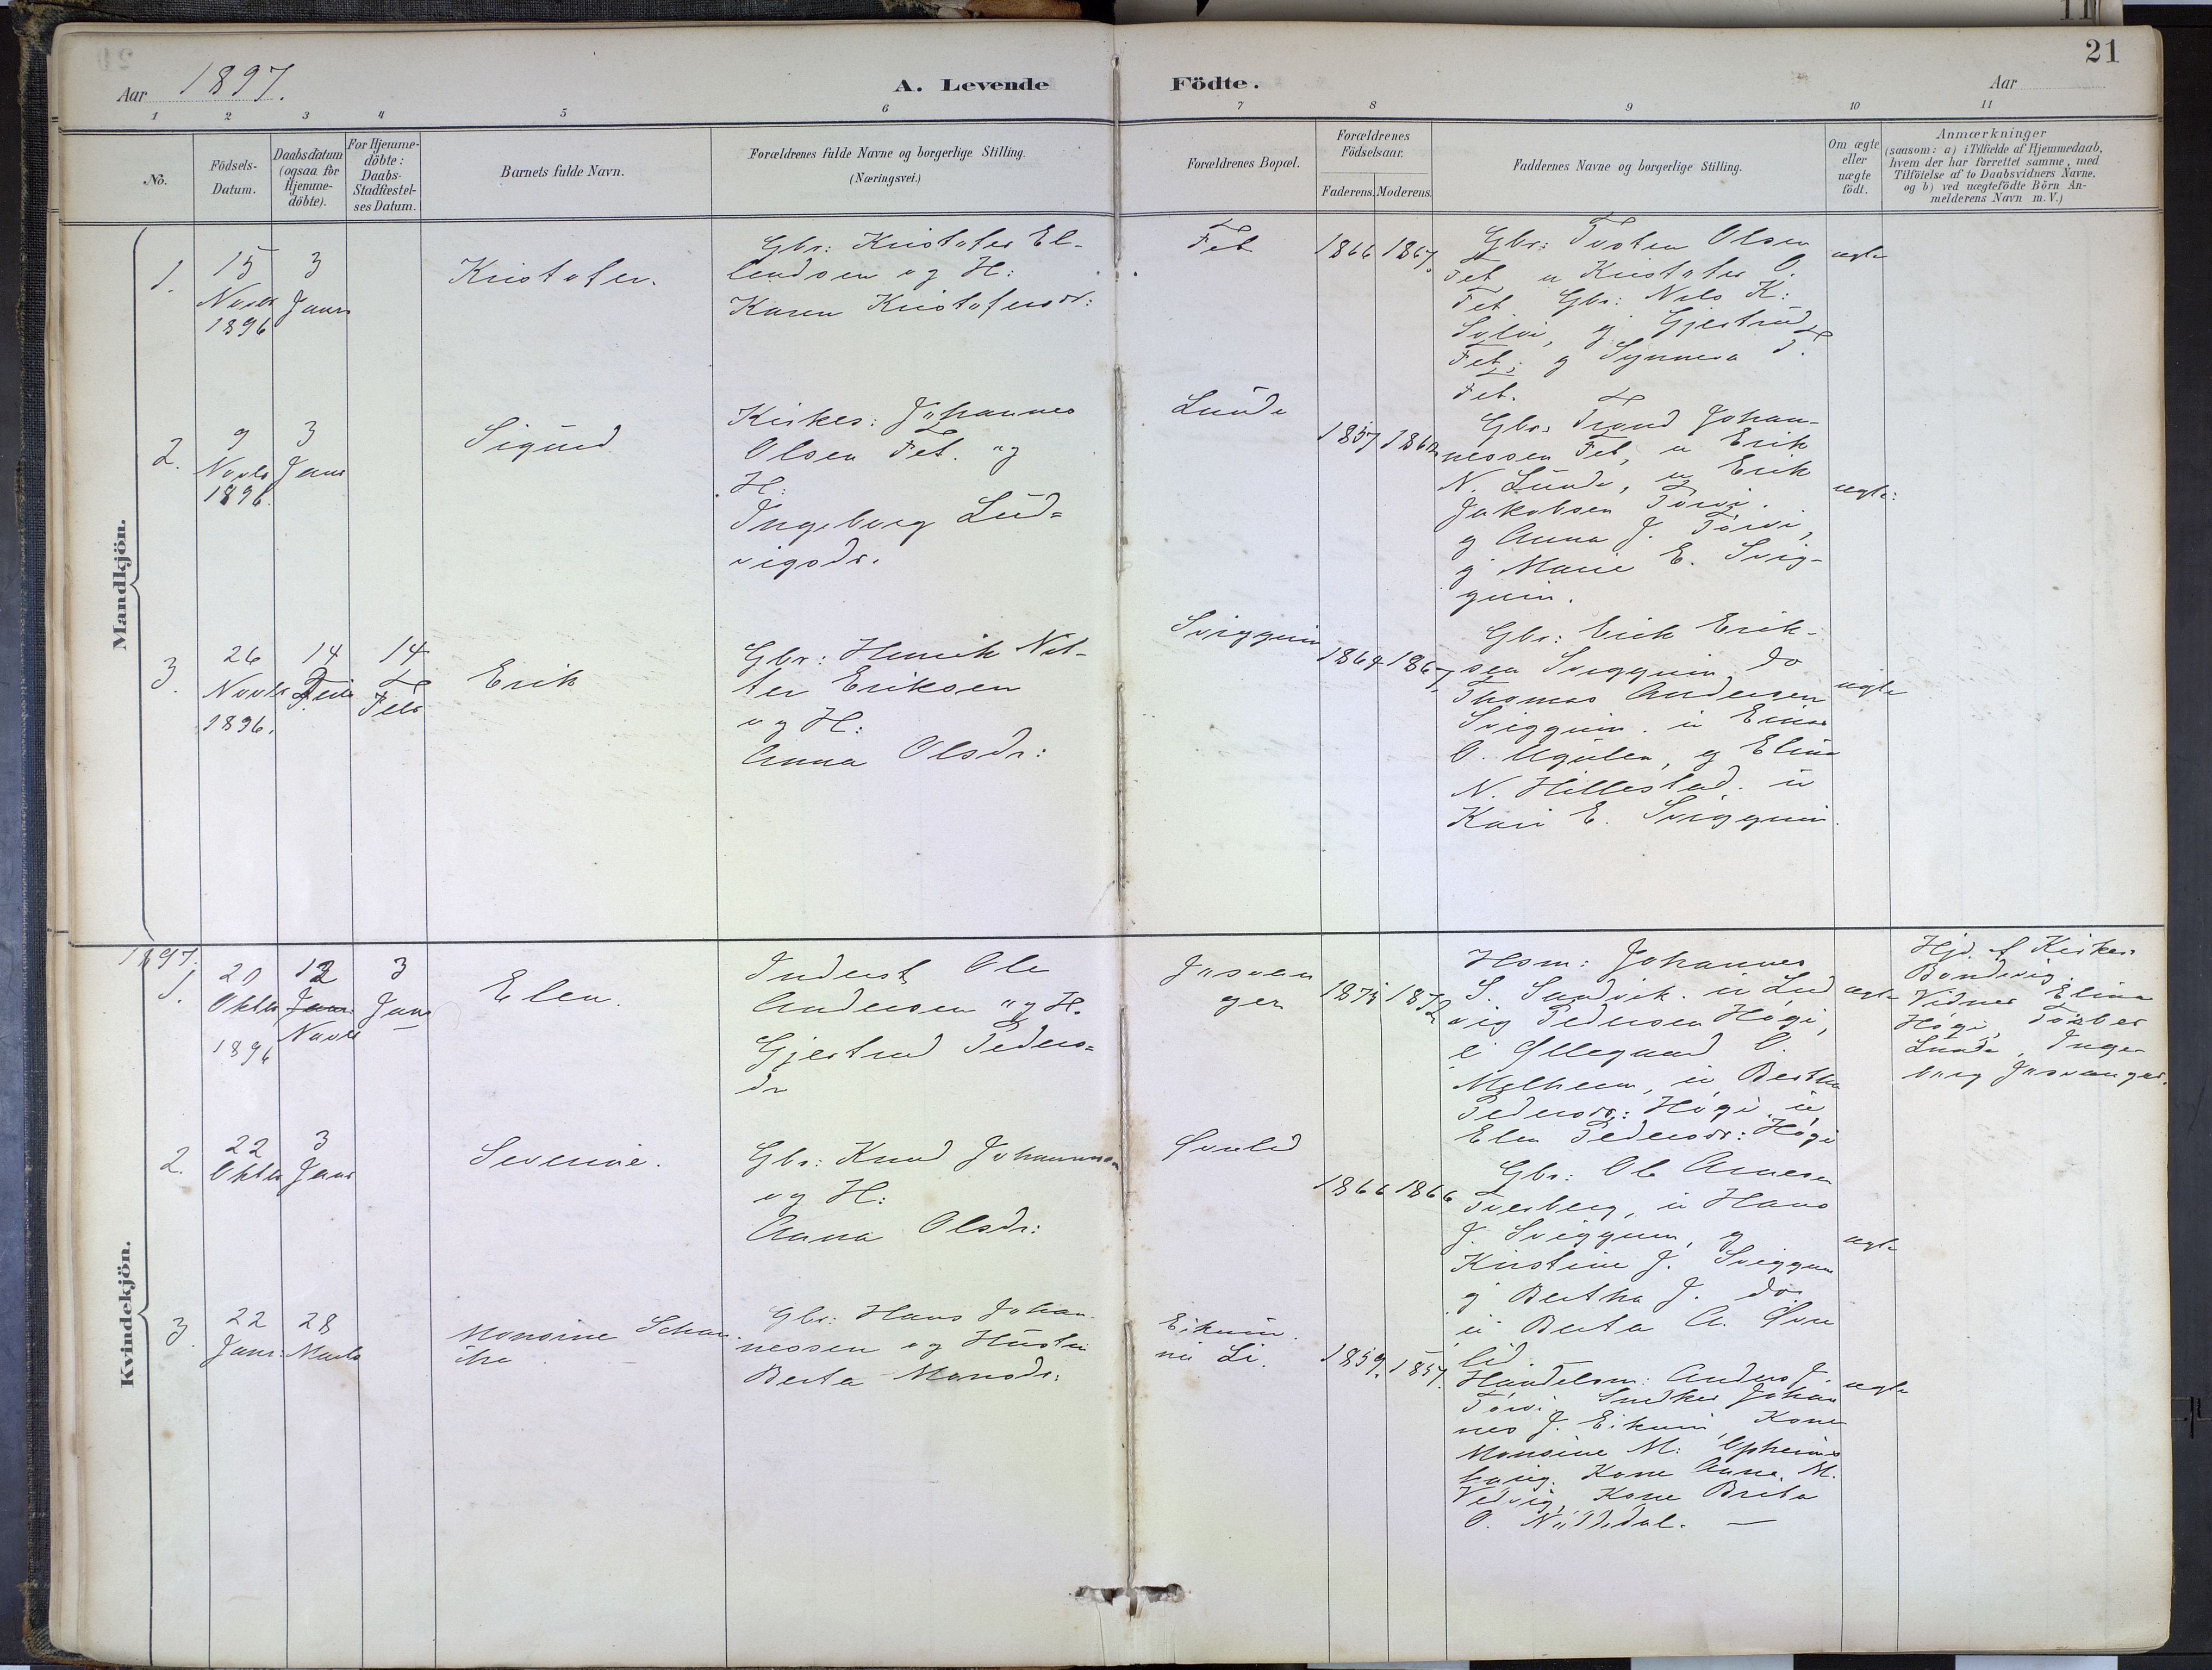 21
Aar 1897.
A. Levende Födte.
Aar
1 2 3 4 5 6 7 8 9 10 11
No.
Födsels-
Datum.
Daabsdatum
(ogsaa for
Hjemme-
döbte).
For Hjemme-
döbte:
Daabs-
Stadfæstel-
ses Datum.
Barnets fulde Navn.
Forældrenes fulde Navne og borgerlige Stilling.
(Næringsvei.)
Forældrenes Bopæl.
Forældrenes
Födselsaar.
Faderens. Moderens.
Faddernes Navne og borgerlige Stilling.
Om ægte
eller
uægte
födt.
Anmærkninger
(saasom: a) i Tilfælde af Hjemmedaab,
hvem der har forrettet samme, med
Tilföielse af to Daabsvidners Navne.
og b) ved uægtefödte Börn An-
melderens Navn m. V.)
Mandkjön.
1.
15
Novbr
1896
3
Janr
Kristofer.
Gbr: Kristofer El-
lendsen og H:
Karen Kristofersdr:
Fet
1866 1867.
Gbr: Tosten Olsen
Fet u Kristofer O.
Fet Gbr: Nils K:
Sylvi, pj Gjertrud
Fet, pj Synneva T.
Fet.
ægte
2.
9
Novbr
1896.
3
Janr
Sigurd
Kirkes: Johannes
Olsen Fet. og
H:
Ingeborg Lud=
vigsdr.
Lunde
1857 1860
Gbr: Trond Johan-
nessen Fet, u Erik
N. Lunde, u Erik
Jakobsen Törvi.
pj Anna J. Törvi,
pj Marie E. Svig-
gum.
ægte:
3.
26
Novbr
1896.
14
Febr
14
Febr
Erik
Gbr: Henrik Nit-
ter Eriksen
og H:
Anna Olsdr:
Sviggum
1864 1867.
Gbr: Erik Erik-
sen Sviggum. do
Thomas Andersen
Sviggum. u Einar
O. Ugulen, pj Elina
N. Hillestad. u
Kari E. Sviggum.
ægte
Kvindekjön.
1897.
1.
20
Oktbr
1896
12
Janr
Novbr
3
Janr
Elen.
Inderst Ole
Andersen og H.
Gjertrud Peders=
dr
Josvan
ger
1875 1872
Hsm: Johannes
S. Sundvik. u Lud
vig Pedersen Högi,
u Øllegaard O.
Melheim, u Bertha
Pedersdr: Högi. u
Elen Pedersdr: Högi
ægte
Hjd. af Kirkes
Bondevig.
Vidner Elina
Högi, Torber
Lunde, Inge
borg Josvanger.
2.
22
Oktbr
3
Janr
Severine.
Gbr: Knud Johannesen
og H:
Anna Olsdr:
Øvrelid
1866 1866
Gbr: Ole Arnesen
Tverberg, u Hans
J. Sviggum, pj
Kirstine J. Sviggum
pj Bertha J. do.
u Berta A. Øvre
lid.
ægte
3.
22
Janr:
28
Marts
Monsine
Gbr: Hans Johan
nessen og Hustru
Berta Monsdr:
Eikum.
nu Li.
1859. 1857.
Handelsm: Anders J.
Törvi Snedker Johan
nes J. Eikum, Kone
Monsine M: Opheims
Kone Anna. M.
Vedvig, Kone Brita
O. Nöttedal. —
ægte